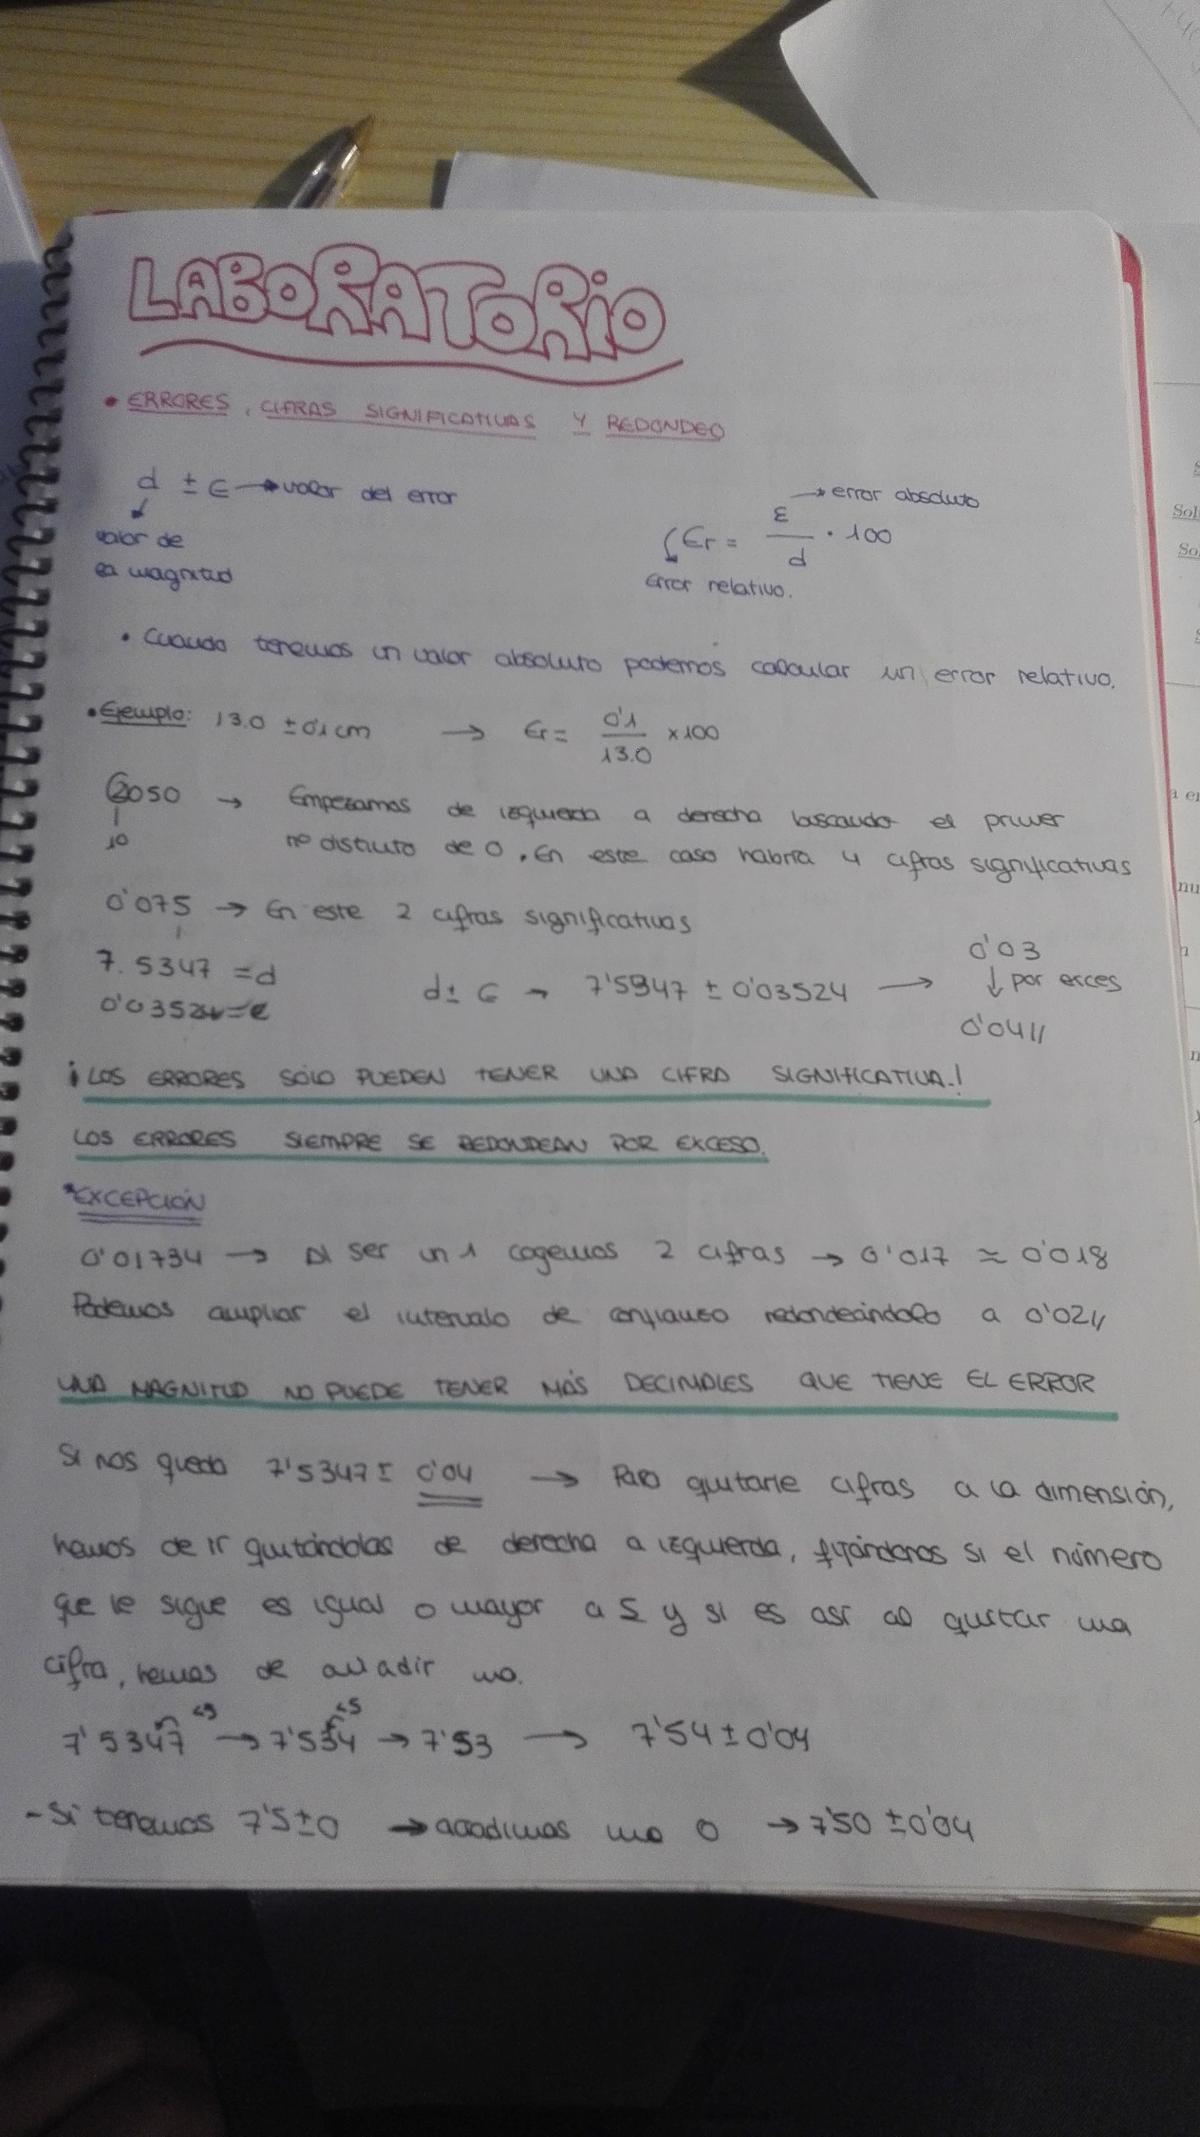 LABORATORIO
• ERRORES, CIFRAS SIGNIFICATIVAS Y REDONDEO
d ± ϵ → valor del error
valor de
la magnitud
→ error absoluto
ϵr = ε/d · 100
Error relativo.
• Cuando tenemos un valor absoluto podemos calcular un error relativo.
• Ejemplo: 13.0 ± 0'1 cm → ϵr = 0'1/13.0 x100
2050 → Empezamos de izquierda a derecha buscando el primer
1º
nº distinto de 0. En este caso habría 4 cifras significativas
0'075 → En este 2 cifras significativas
7.5347 = d
0'03524 = ϵ
d ± ϵ → 7'5347 ± 0'03524 → 0'03
↓ por exces
0'04//
¡LOS ERRORES SÓLO PUEDEN TENER UNA CIFRA SIGNIFICATIVA!
LOS ERRORES SIEMPRE SE REDONDEAN POR EXCESO.
*EXCEPCIÓN
0'01734 → Al ser un 1 cogemos 2 cifras → 0'017 ≈ 0'018
Podemos ampliar el intervalo de confianza redondeándolo a 0'02//
UNA MAGNITUD NO PUEDE TENER MÁS DECIMALES QUE TIENE EL ERROR
Si nos queda 7'5347 ± 0'04 → Para quitarle cifras a la dimensión,
hemos de ir quitándolas de derecha a izquierda, fijándonos si el número
que le sigue es igual o mayor a 5 y si es así al quitar una
cifra, hemos de añadir uno.
7'5347 → 7'534 → 7'53 → 7'54 ± 0'04
<5
- Si tenemos 7'5 ± 0 → añadimos un 0 → 7'50 ± 0'04